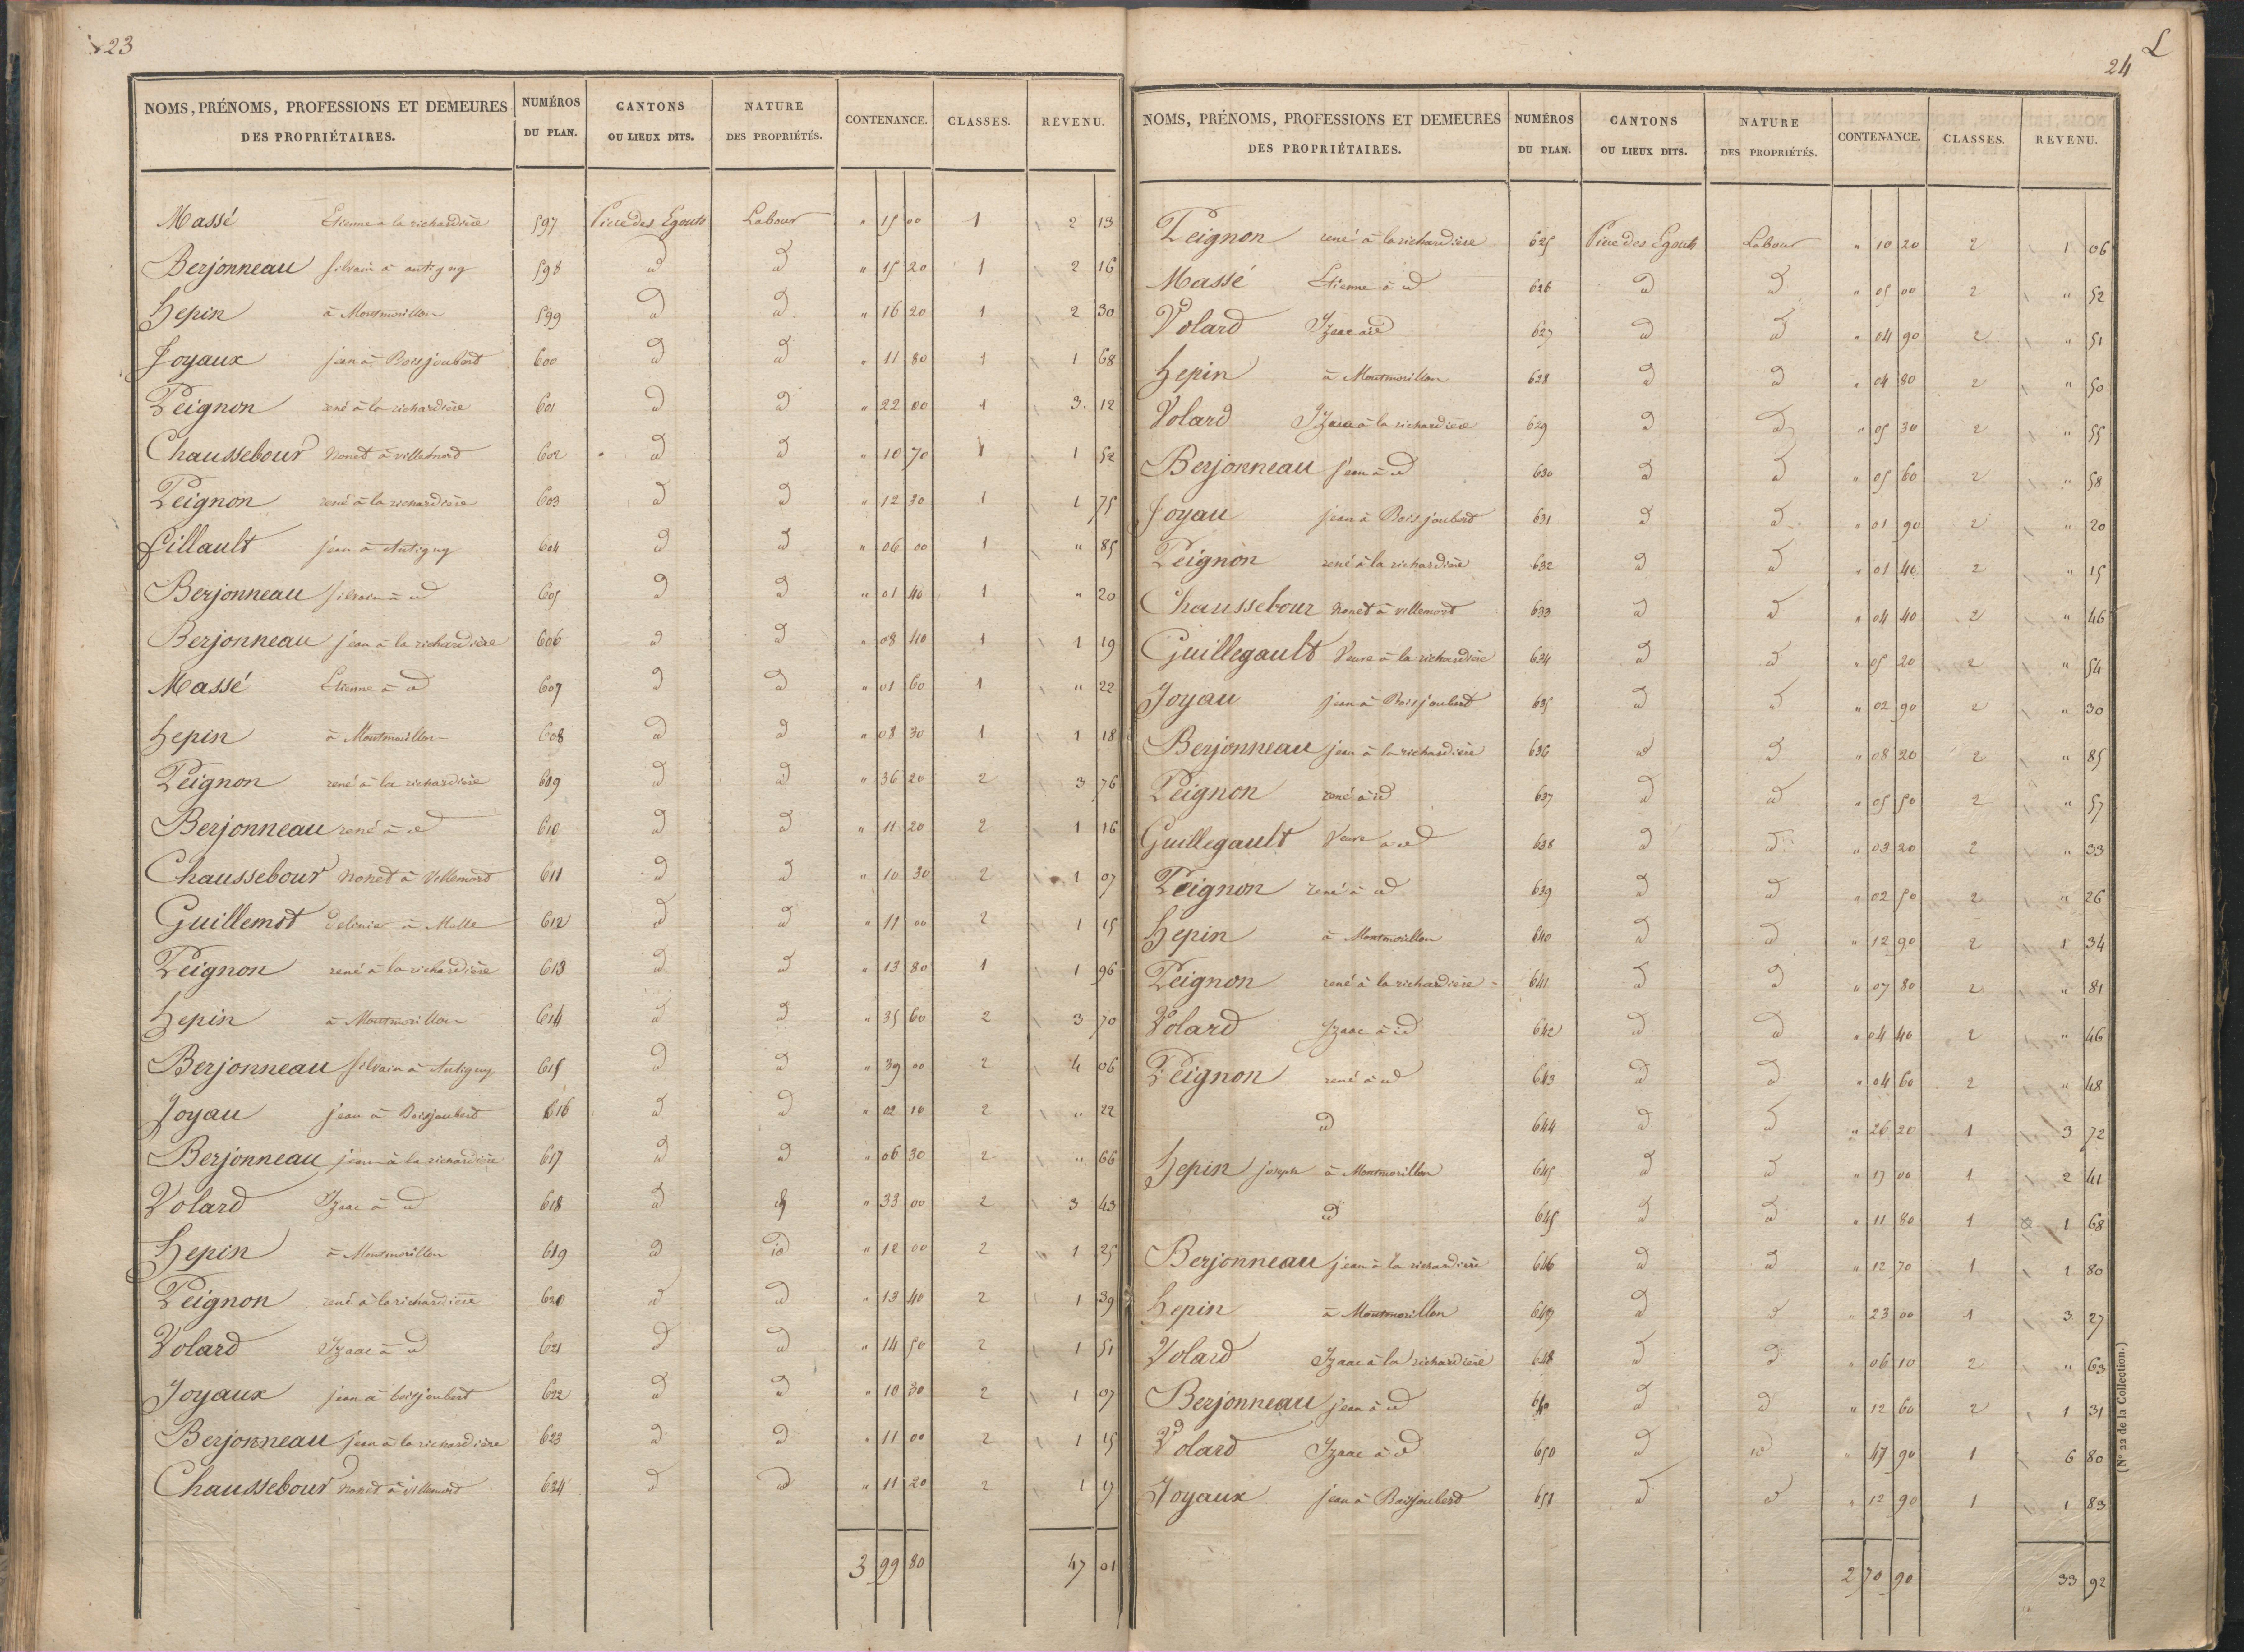 23
NOMS, PRÉNOMS, PROFESSIONS ET DEMEURES DES PROPRIÉTAIRES. NUMÉROS DU PLAN. CANTONS OU LIEUX DITS. NATURE DES PROPRIÉTÉS. CONTENANCE. CLASSES. REVENU.
Massé Etienne à la richardière 597 Piece des Egouts Labour " 15 00 1 2 13
Berjonneau silvain à antigny 598 id id " 15 20 1 2 16
hepin à Montmorillon 599 id id " 16 20 1 2 30
Joyaux jean à Boisjoubert 600 id id " 11 80 1 1 68
Peignon rené à la richardière 601 id id " 22 00 1 3 12
Chaussebour nonet à villemord 602 id id " 10 70 1 1 52
Peignon rené à la richardière 603 id id " 12 30 1 1 75
fillault jean à Antigny 604 id id " 06 00 1 " 85
Berjonneau silvain à id 605 id id " 01 40 1 " 20
Berjonneau jean à la richardière 606 id id " 08 40 1 1 19
Massé Etienne à id 607 id id " 01 60 1 " 22
hepin à Montmorillon 608 id id " 08 30 1 1 18
Peignon rené à la richardière 609 id id " 36 20 2 3 76
Berjonneau rené à id 610 id id " 11 20 2 1 16
Chaussebour nonet à Villemord 611 id id " 10 30 2 1 07
Guillemot à 612 id id " 11 00 2 1 15
Peignon rené à la richardière 613 id id " 13 80 1 1 96
hepin à Montmorillon 614 id id " 35 60 2 3 70
Berjonneau silvain à Antigny 615 id id " 39 00 2 4 06
Joyau jean à Boisjoubert 616 id id " 02 10 2 " 22
Berjonneau jean à la richardière 617 id id " 06 30 2 " 66
Volard Izaac à id 618 id id " 33 00 2 3 43
hepin à Montmorillon 619 id id " 12 00 2 1 25
Peignon rené à la richardière 620 id id " 13 40 2 1 39
Volard Izaac à id 621 id id " 14 50 2 1 51
Joyaux jean à boisjoubert 622 id id " 10 30 2 1 07
Berjonneau jean à la richardière 623 id id " 11 00 2 1 15
Chaussebour nonet à villemord 624 id id " 11 20 2 1 17
3 99 80 47 01
L
24
NOMS, PRÉNOMS, PROFESSIONS ET DEMEURES DES PROPRIÉTAIRES. NUMÉROS DU PLAN. CANTONS OU LIEUX DITS. NATURE DES PROPRIÉTÉS. CONTENANCE. CLASSES. REVENU.
Peignon rené à la richardière 625 Piece des Egouts Labour " 10 20 2 1 06
Massé Etienne à id 626 id id " 05 00 2 " 52
Volard Izaac à id 627 id id " 04 90 2 " 51
hepin à Montmorillon 628 id id " 04 80 2 " 50
Volard Izaac à la richardière 629 id id " 05 30 2 " 55
Berjonneau jean à id 630 id id " 05 60 2 " 58
Joyau jean à Boisjoubert 631 id id " 01 90 2 " 20
Peignon rené à la richardière 632 id id " 01 40 2 " 15
Chaussebour nonet à villemord 633 id id " 04 40 2 " 46
Guillegault Veuve à la richardière 634 id id " 05 20 2 " 54
Joyau jean à Boisjoubert 635 id id " 02 90 2 " 30
Berjonneau jean à la richardière 636 id id " 08 20 2 " 85
Peignon rené à id 637 id id " 05 50 2 " 57
Guillegault Veuve à id 638 id id " 03 20 2 " 33
Peignon rené à id 639 id id " 02 50 2 " 26
hepin à Montmorillon 640 id id " 12 90 2 1 34
Peignon rené à la richardière 641 id id " 07 80 2 " 81
Volard Izaac à id 642 id id " 04 40 2 " 46
Peignon rené à id 643 id id " 04 60 2 " 48
id 644 id id " 26 20 1 3 72
hepin joseph à Montmorillon 645 id id " 17 00 1 2 41
id 645 id id " 11 80 1 1 68
Berjonneau jean à la richardière 646 id id " 12 70 1 1 80
hepin à Montmorillon 647 id id " 23 00 1 3 27
Volard Izaac à la richardière 648 id id " 06 10 2 " 63
Berjonneau jean à id id id " 12 60 2 1 31
Volard Izaac à id 650 id id " 47 90 1 6 80
Joyaux jean à Boisjoubert 651 id id " 12 90 1 1 83
2 70 90 33 92
(N° 22 de la Collection.)